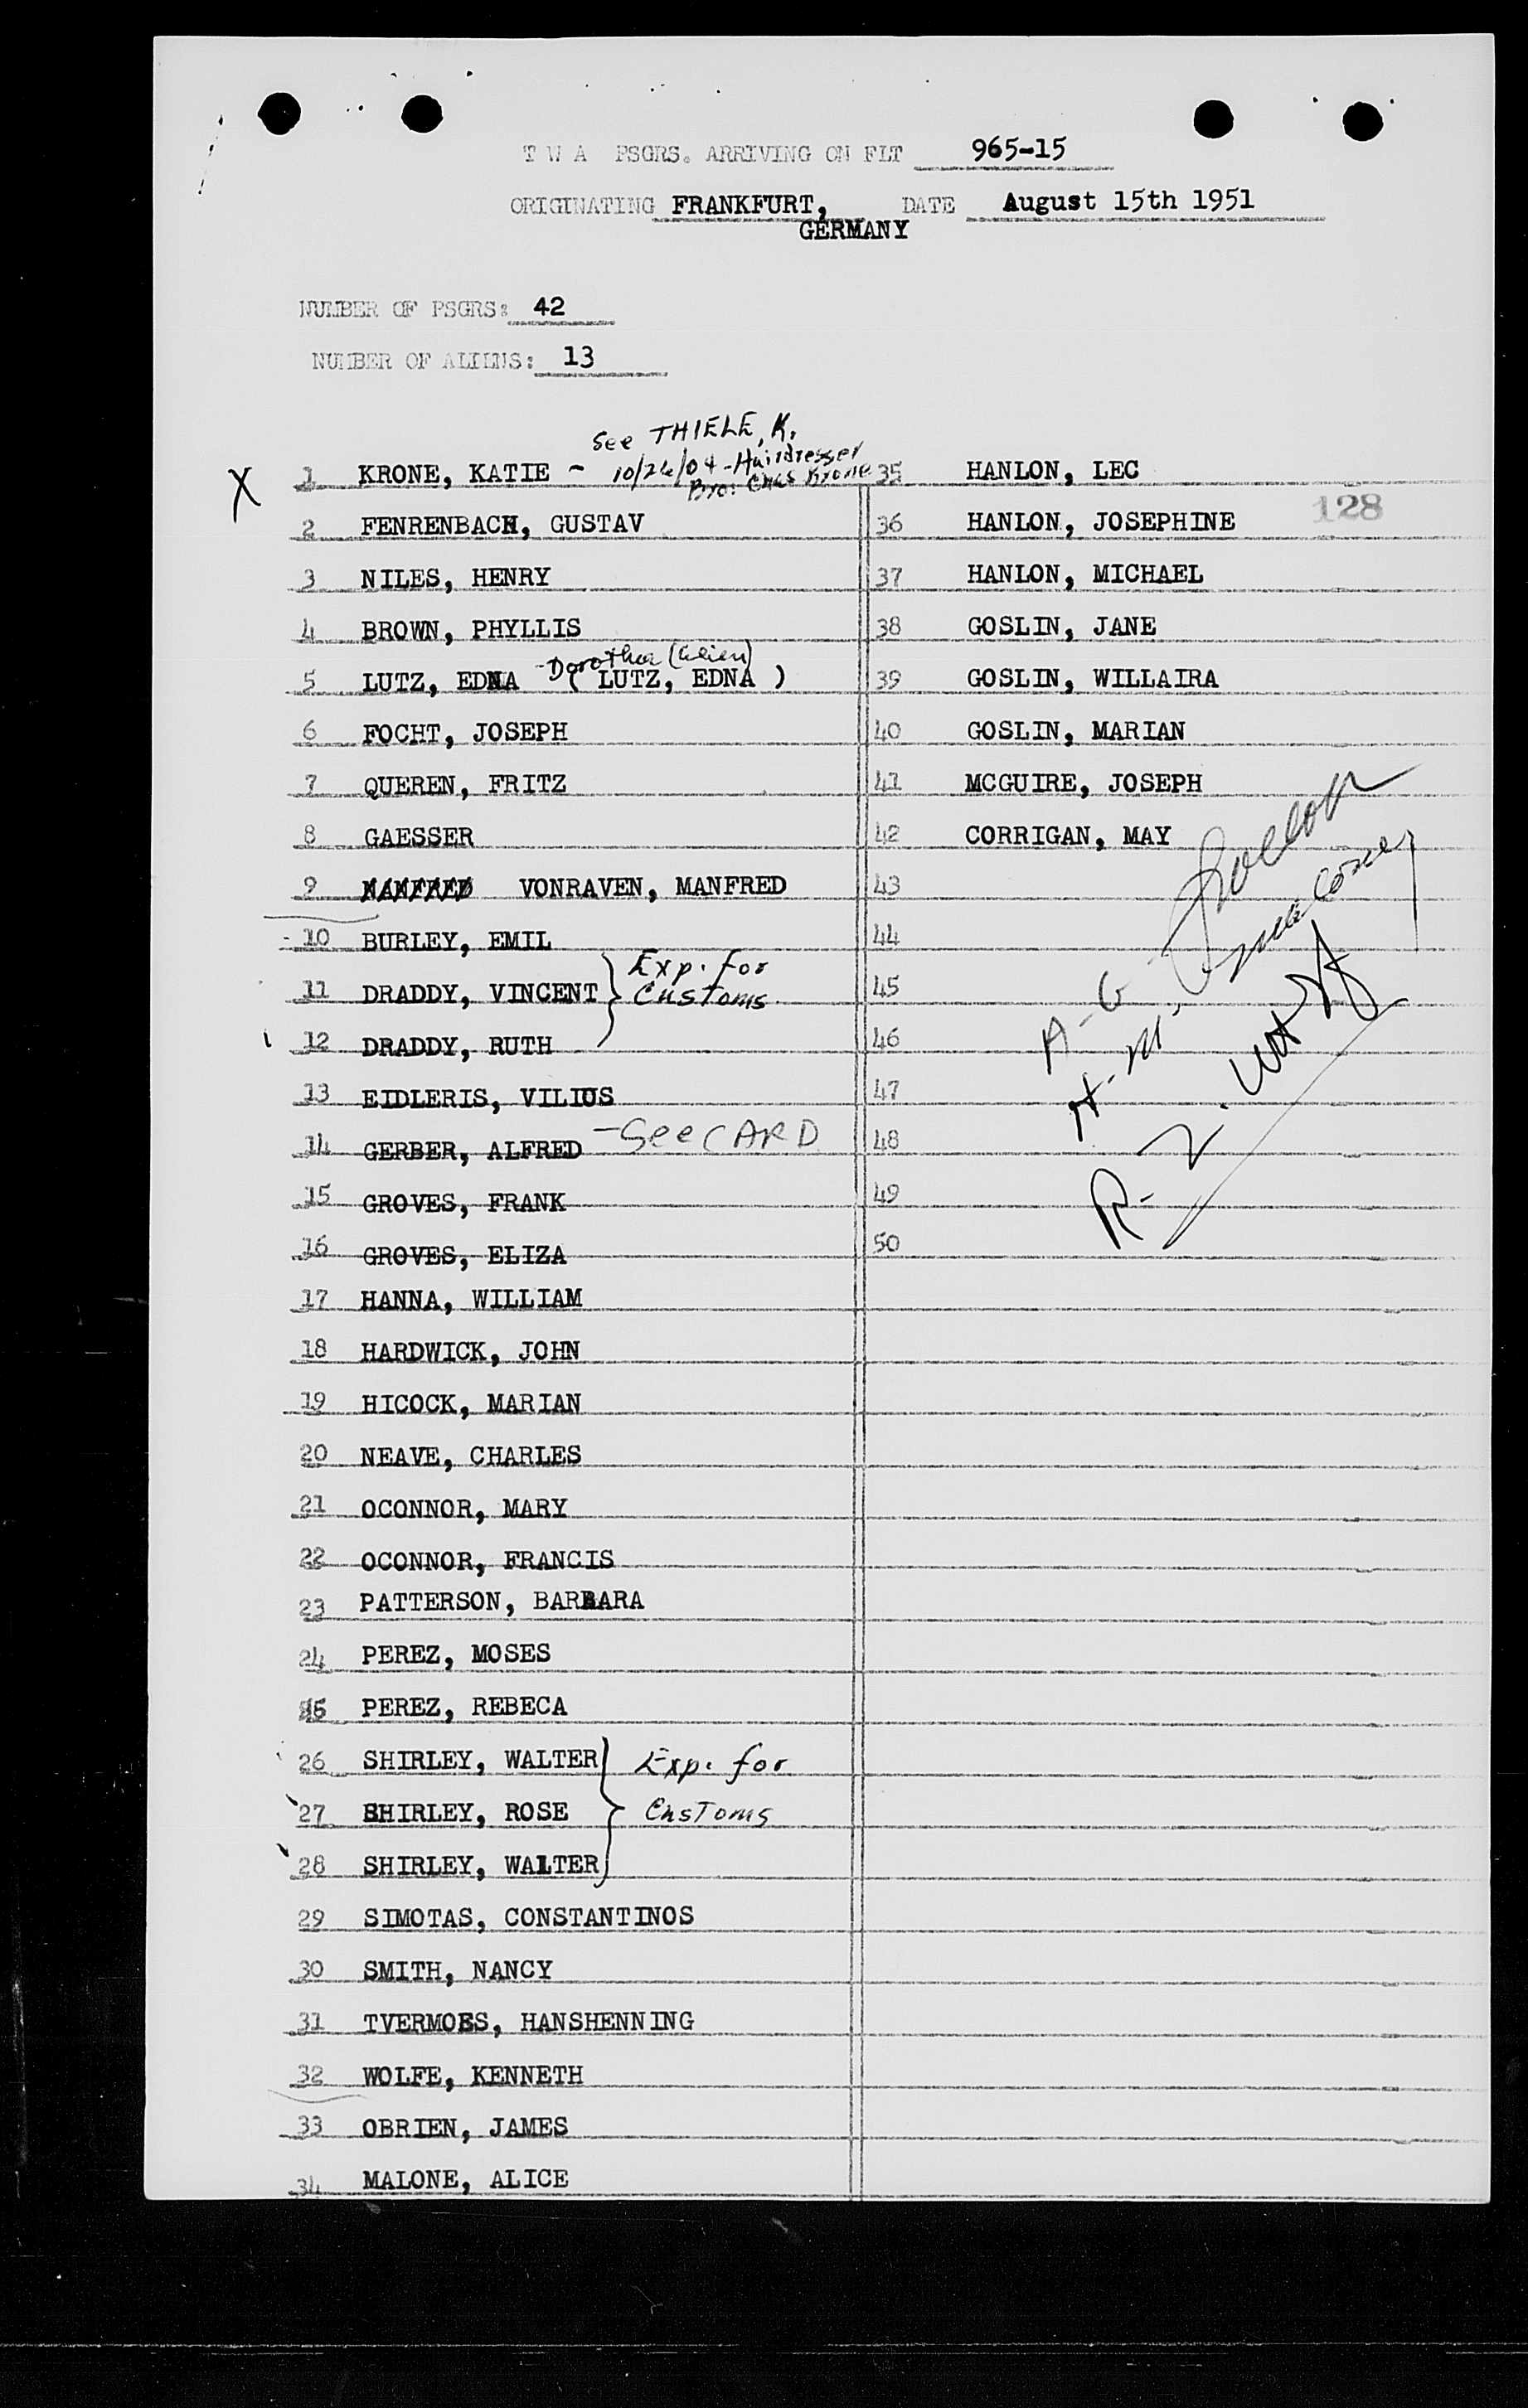 T W A PSGRS. ARRIVING ON FLT 965-15
ORIGINATING FRANKFURT, GERMANY DATE August 15th 1951
NUMBER OF PSGRS: 42
NUMBER OF ALIENS: 13
See THIELE, K.
X 1 KRONE, KATIE - 10/26/04 - Hairdresser
Bro: Chas Krone
2 FENRENBACH, GUSTAV
3 NILES, HENRY
4 BROWN, PHYLLIS
-Dorothea (Klein)
5 LUTZ, EDNA ( LUTZ, EDNA )
6 FOCHT, JOSEPH
7 QUEREN, FRITZ
8 GAESSER
9 MANFRED VONRAVEN, MANFRED
10 BURLEY, EMIL
11 DRADDY, VINCENT } Exp. for Customs
12 DRADDY, RUTH
13 EIDLERIS, VILIUS
14 GERBER, ALFRED - See CARD
15 GROVES, FRANK
16 GROVES, ELIZA
17 HANNA, WILLIAM
18 HARDWICK, JOHN
19 HICOCK, MARIAN
20 NEAVE, CHARLES
21 OCONNOR, MARY
22 OCONNOR, FRANCIS
23 PATTERSON, BARBARA
24 PEREZ, MOSES
25 PEREZ, REBECA
26 SHIRLEY, WALTER } Exp. for
27 SHIRLEY, ROSE Customs
28 SHIRLEY, WALTER
29 SIMOTAS, CONSTANTINOS
30 SMITH, NANCY
31 TVERMOES, HANSHENNING
32 WOLFE, KENNETH
33 OBRIEN, JAMES
34 MALONE, ALICE
35 HANLON, LEC
128
36 HANLON, JOSEPHINE
37 HANLON, MICHAEL
38 GOSLIN, JANE
39 GOSLIN, WILLAIRA
40 GOSLIN, MARIAN
41 MCGUIRE, JOSEPH
42 CORRIGAN, MAY
43
44
45
46
47
48
49
50
A - G
H - M
R - Z